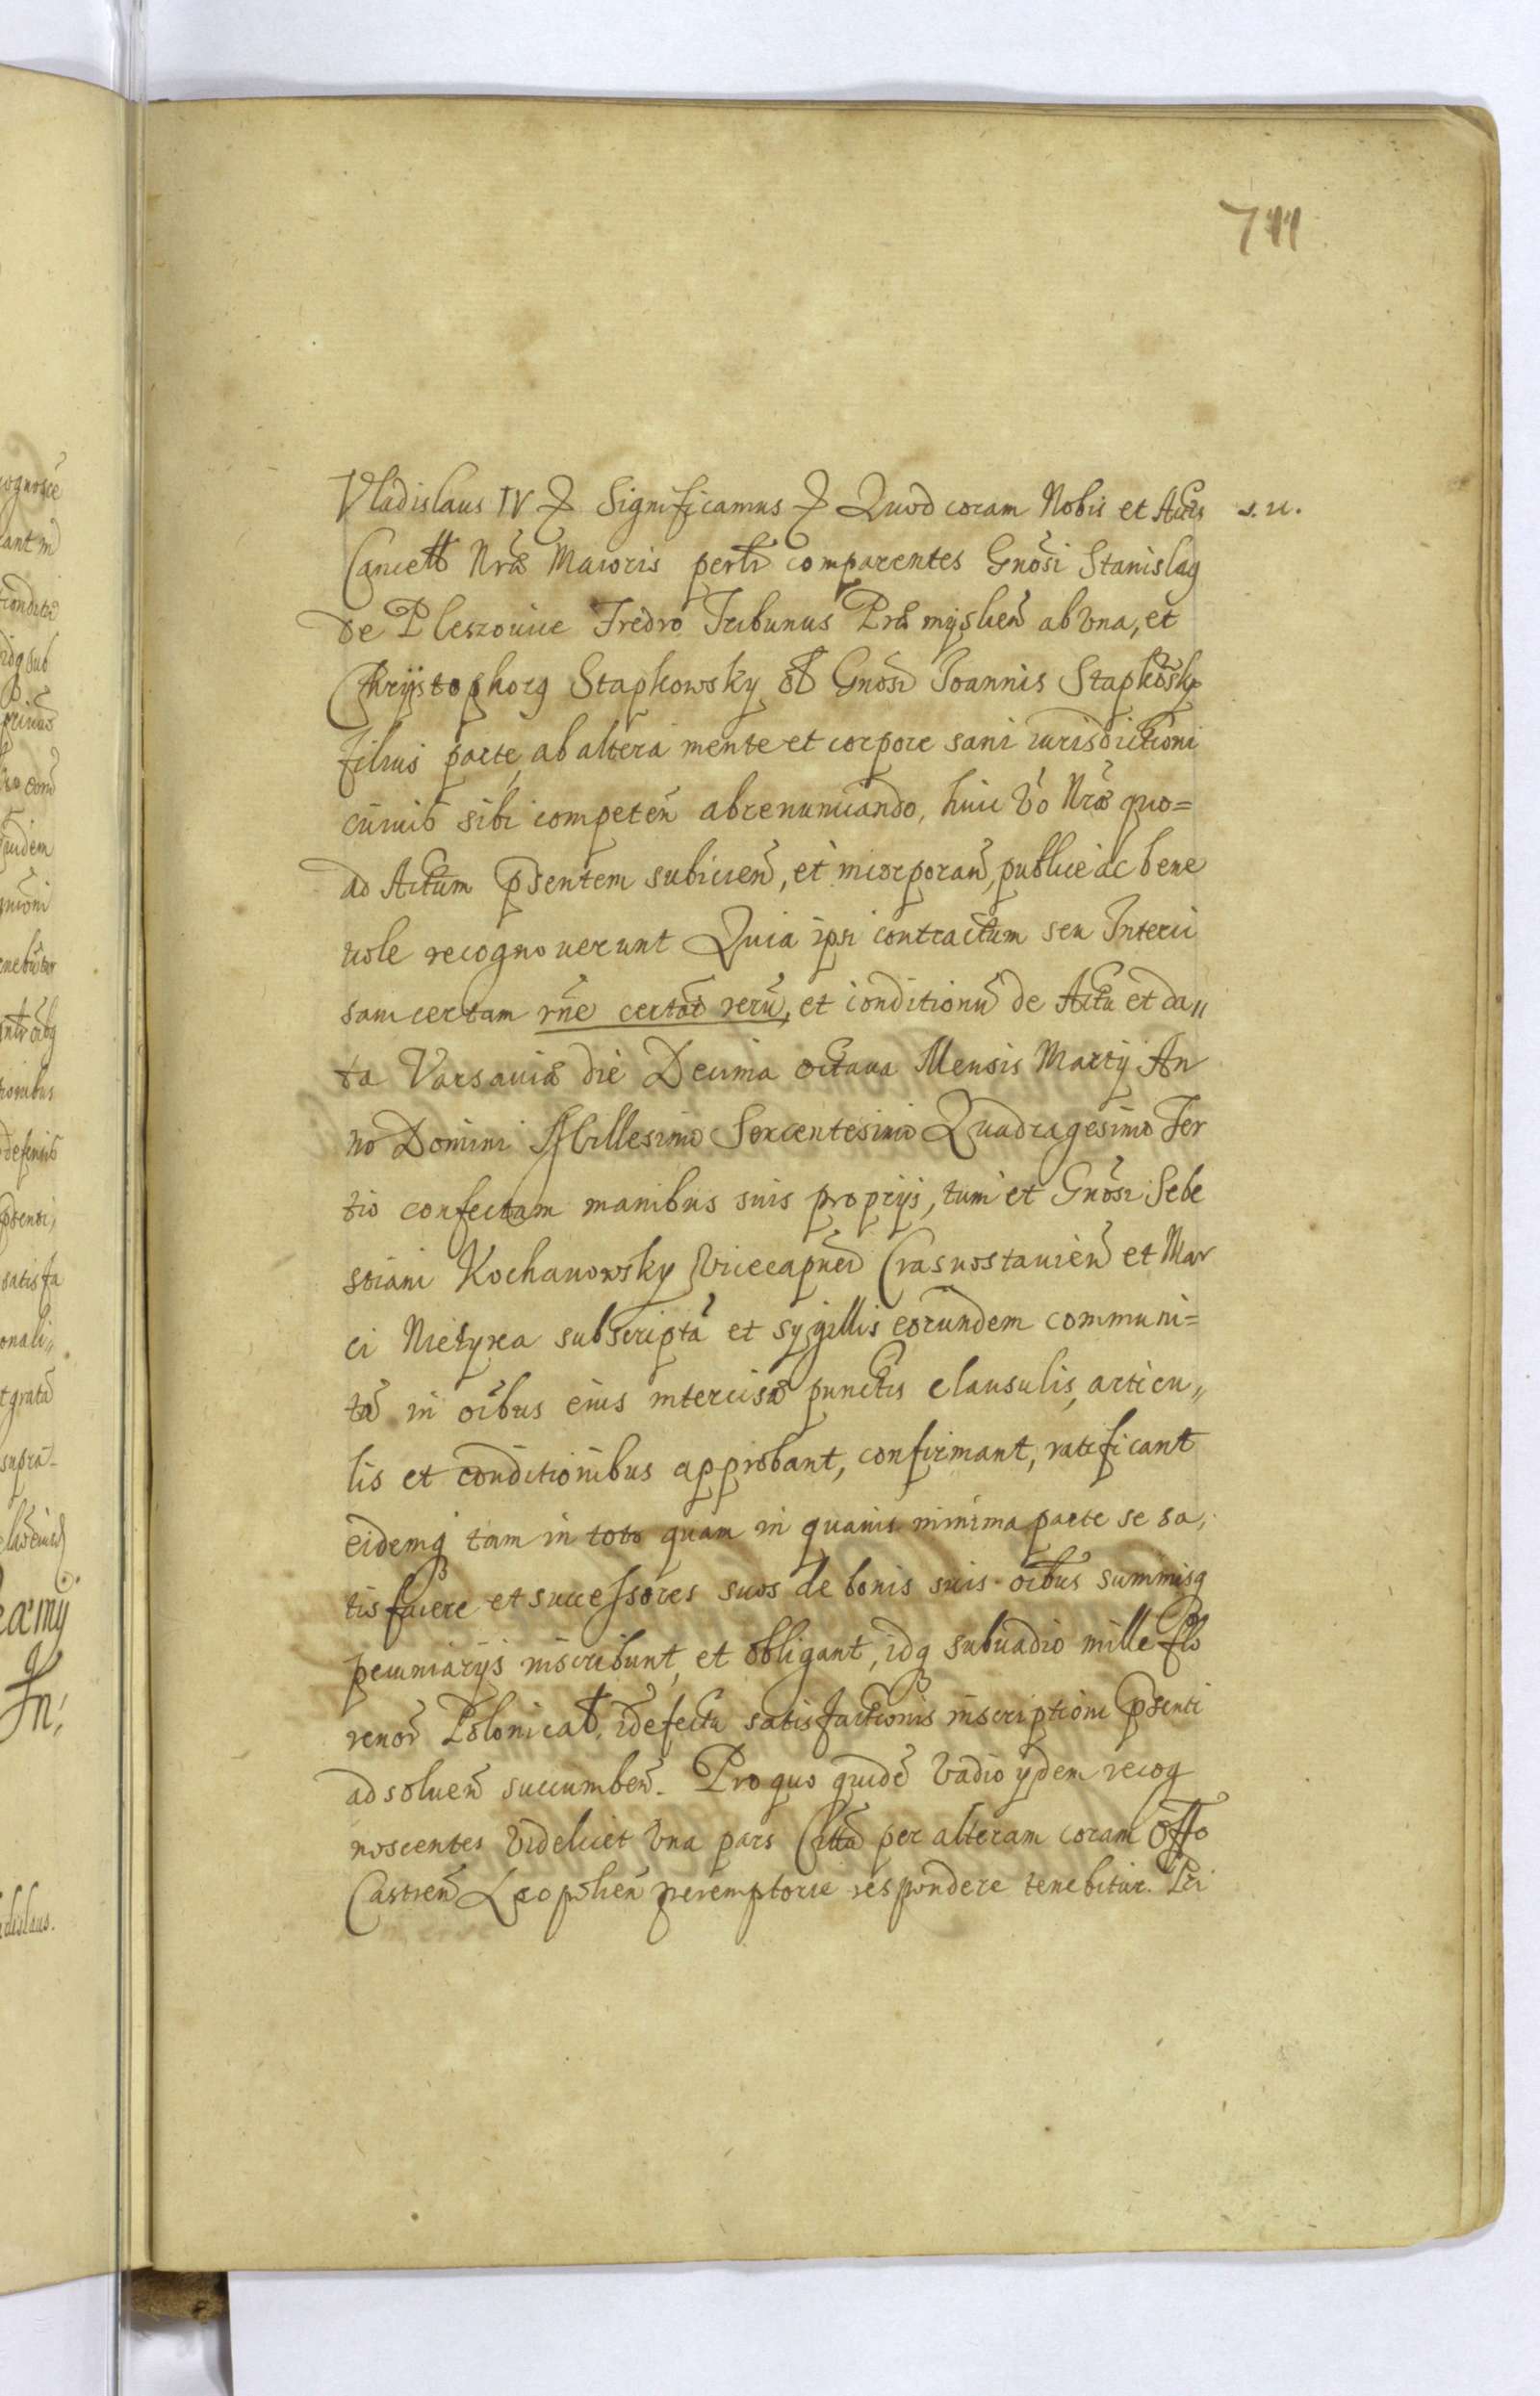 711
Vladislaus IV &c Significamus &c Quod coram Nobis et Actis s. n.
Cancell Nrae Maioris perlr comparentes Gnosi Stanislaq
de Pleszouice Fredro Tribunus Praemyslien ab Una, et
Chrijstophorq Stapkowsky ol Gnosi Joannis Stapkosky
filius parte ab altera mente et corpore sani iurisdictioni
cuiuis sibi competen abrenunciando, huic Vo Nrae quo=
ad Actum psentem subicien, et incorporan, publice ac bene
uole recognouerunt Quia ipsi contractum seu Interci
sam certam rne certar reru, et conditionu de Actu et da„
ta Varsauiae die Decima octaua Mensis Martij An
no Domini Millesimo Sexcentesimo Quadragesimo Ter
tio confectam manibus suis proprijs, tum et Gnosi Seba
stiani Kochanowsky Vicecapnei Crasnostauien et Mar
ci Nietyxa subscripta et sygillis eorundem communi=
ta in oibus eius intercisae punctis clausulis, articu„
lis et conditionibus approbant, confirmant, ratificant
eidemq tam in toto quam in quauis minima parte se sa„
tisfacere et successores suos de bonis suis oibus summisq
pecuniarijs inscribunt, et obligant, idq sub uadio mille flo
renor Polonical, i defectu satisfactionis inscriptioni psenti
ad soluen succumben. Pro quo quide Vadio ydem recog
noscentes Videlicet Una pars Citta per alteram coram Offo
Castren Leopolien peremptorie respondere tenebitur. Pri